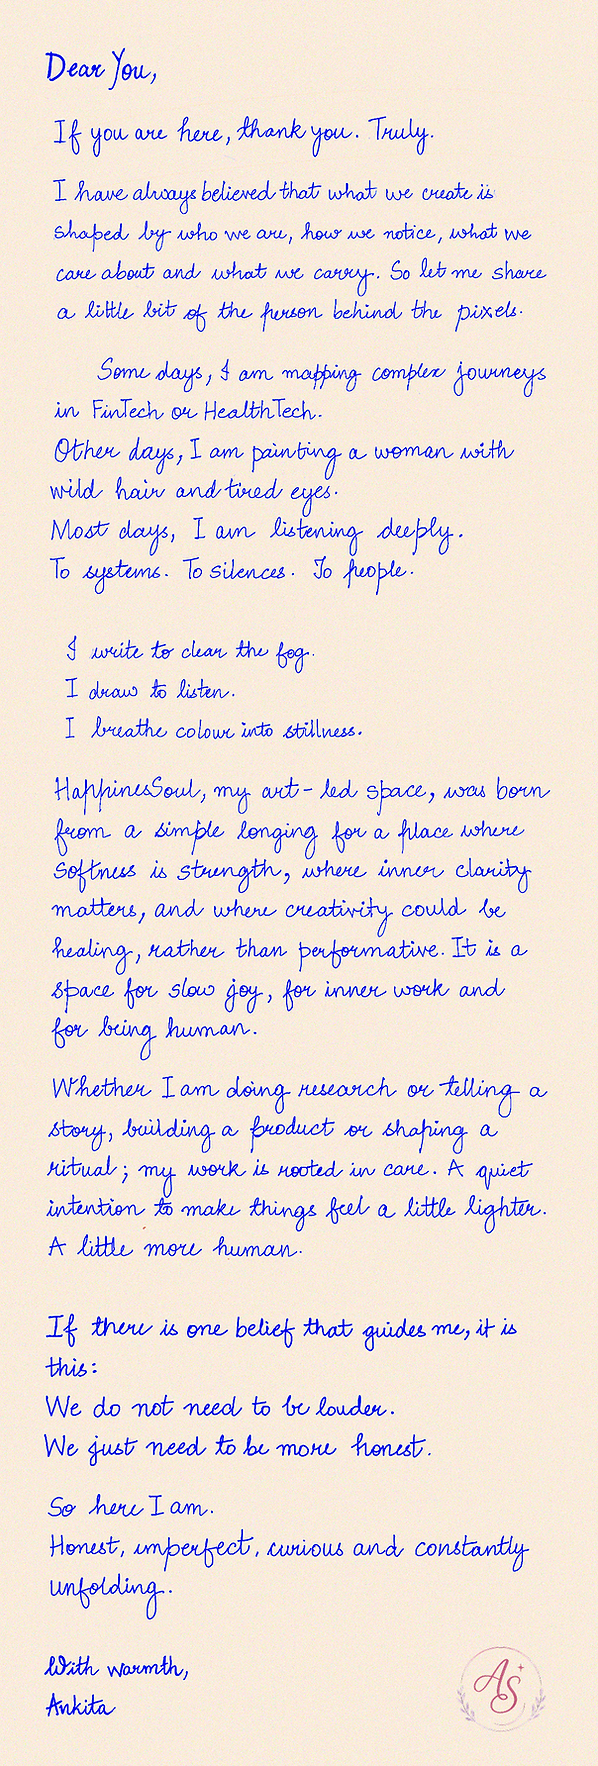 Dear You,
If you are here, thank you. Truly.
I have always believed that what we create is
shaped by who we are, how we notice, what we
care about and what we carry. So let me share
a little bit of the person behind the pixels.
Some days, I am mapping complex journeys
in FinTech or HealthTech.
Other days, I am painting a woman with
wild hair and tired eyes.
Most days, I am listening deeply.
To systems. To silences. To people.
I write to clear the fog.
I draw to listen.
I breathe colour into stillness.
HappinesSoul, my art-led space, was born
from a simple longing for a place where
softness is strength, where inner clarity
matters, and where creativity could be
healing, rather than performative. It is a
space for slow joy, for inner work and
for being human.
Whether I am doing research or telling a
story, building a product or shaping a
ritual; my work is rooted in care. A quiet
intention to make things feel a little lighter.
A little more human.
If there is one belief that guides me, it is
this:
We do not need to be louder.
We just need to be more honest.
So here I am.
Honest, imperfect, curious and constantly
unfolding.
With warmth,
Ankita
AS